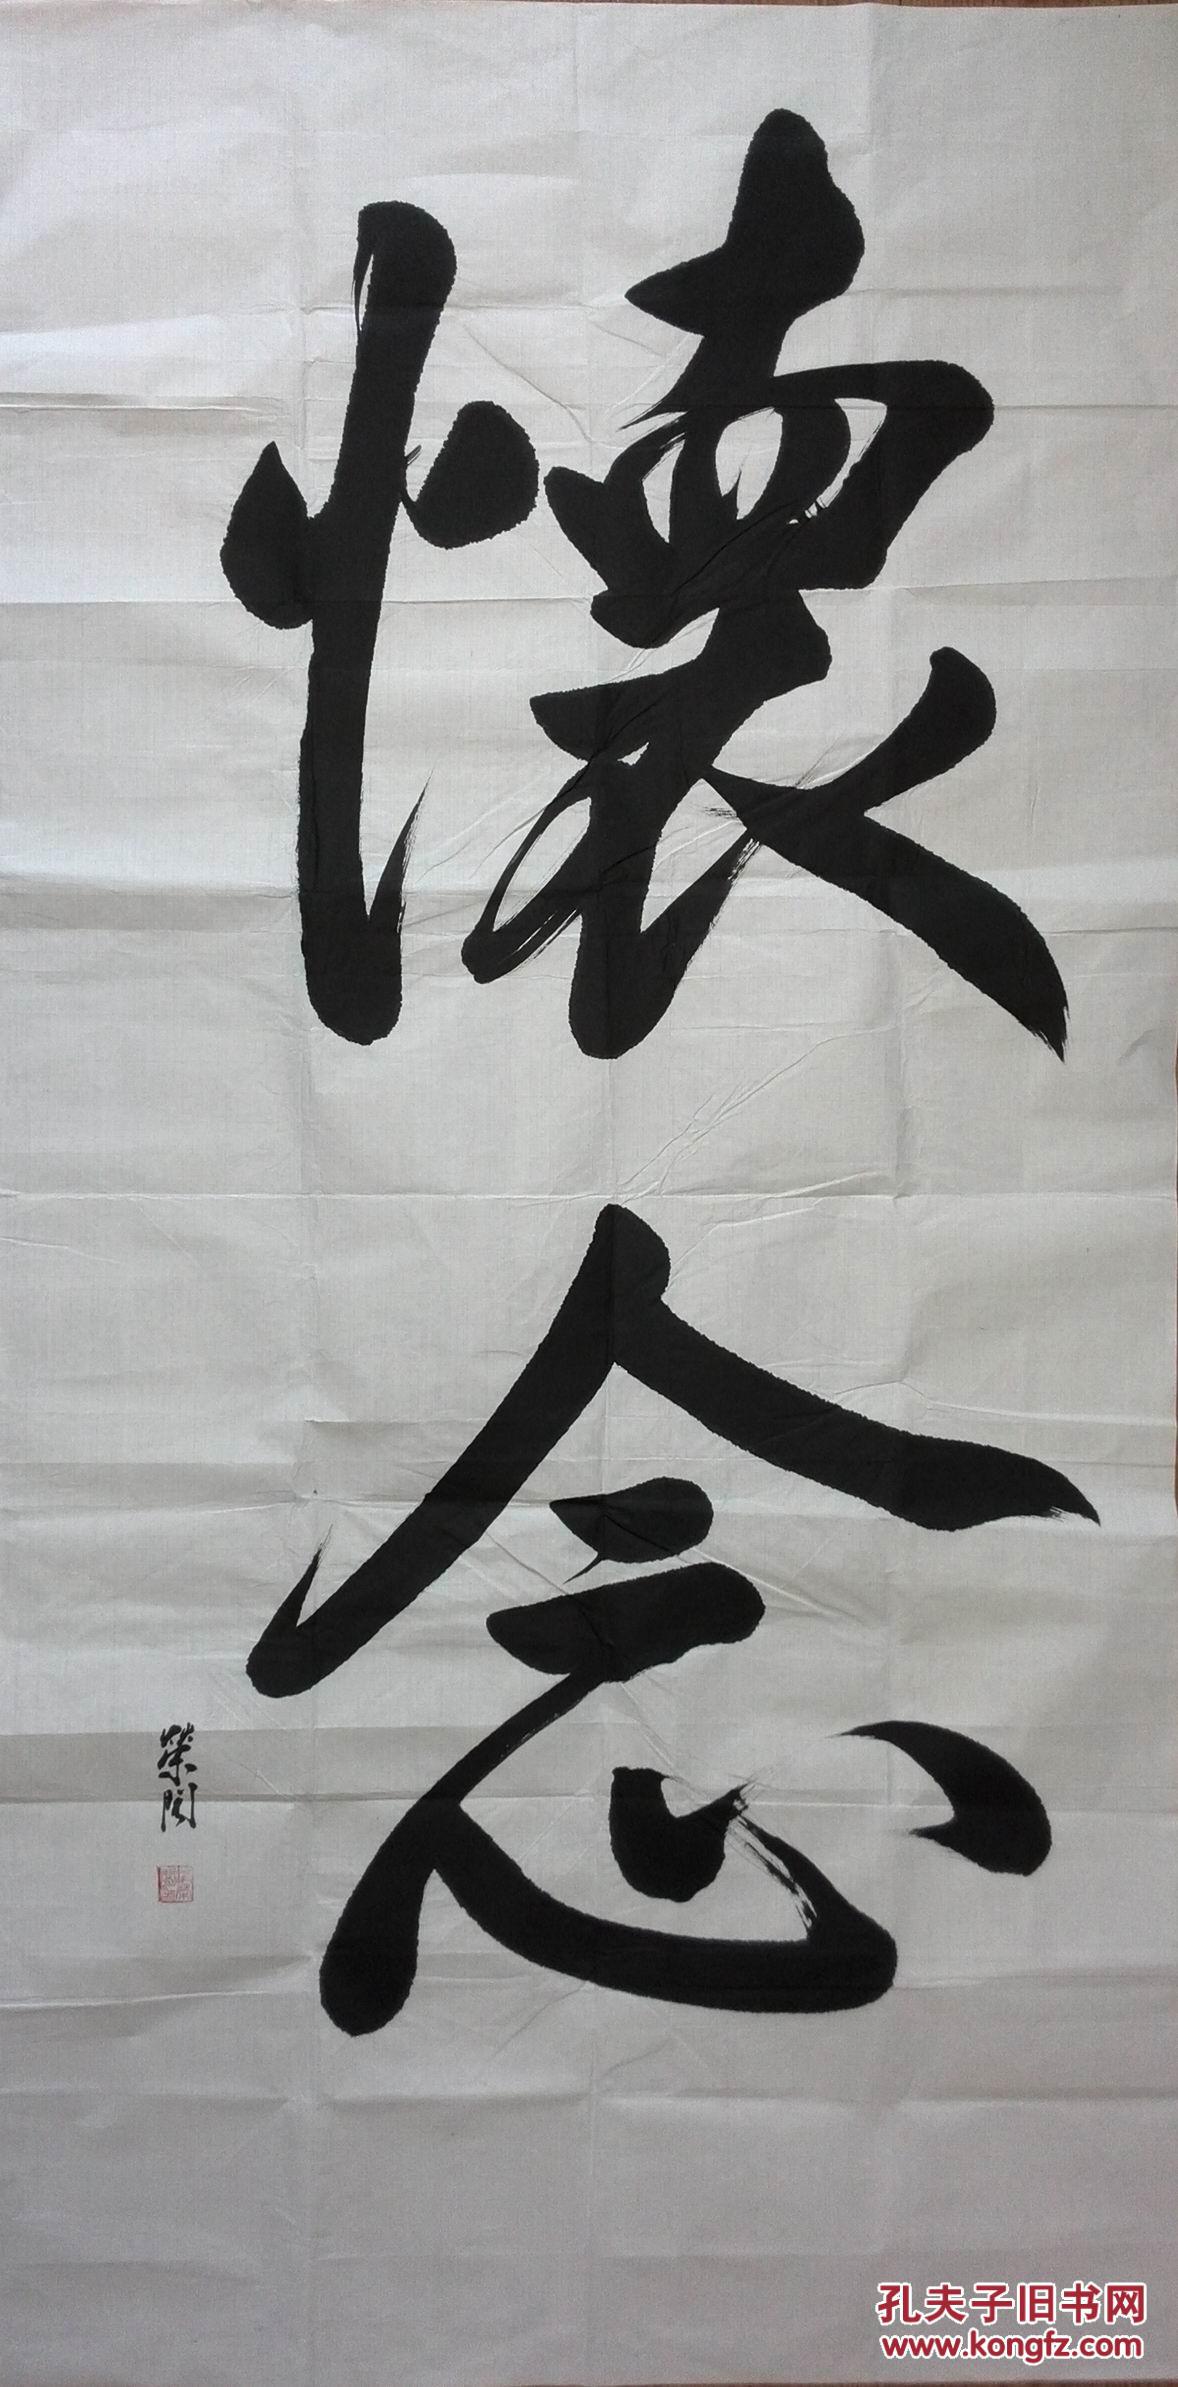 懷念
孔夫子旧书网
www.kongfz.com